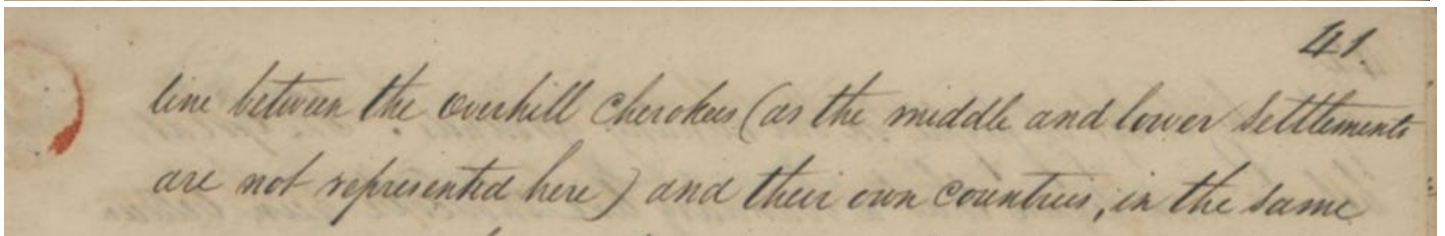 41.
line between the overhill Cherokees (as the middle and lower Settlements
are not represented here) and their own Countries, in the same